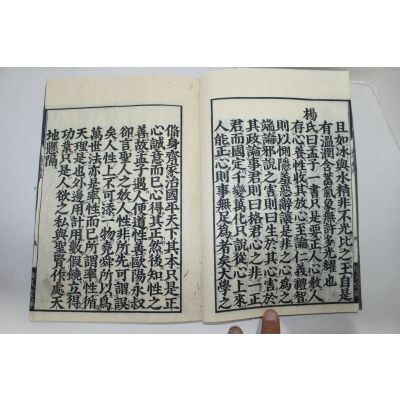 且如冰與水精非不光比之玉自是
有溫潤含蓄氣象無許多光耀也
楊氏曰孟子一書只是要正人心教人
存心養性收其放心至論仁義禮智
則以惻隱羞惡辭讓是非之心為之
端論邪說之害則曰生於其心害於
其政論事君則曰格君心之非一正
君而國定千變萬化只說從心上來
人能正心則事無足為者矣大學之
脩身齊家治國平天下其本只是正
心誠意而已心得其正然後知性之
善故孟子遇人便道性善歐陽永叔
卻言聖人之教人性非所先可謂誤
矣人性上不可添一物堯舜所以為
萬世法亦是率性而已所謂率性循
天理是也外邊用計用數假饒立得
功業只是人欲之私與聖賢作處天
地懸隔